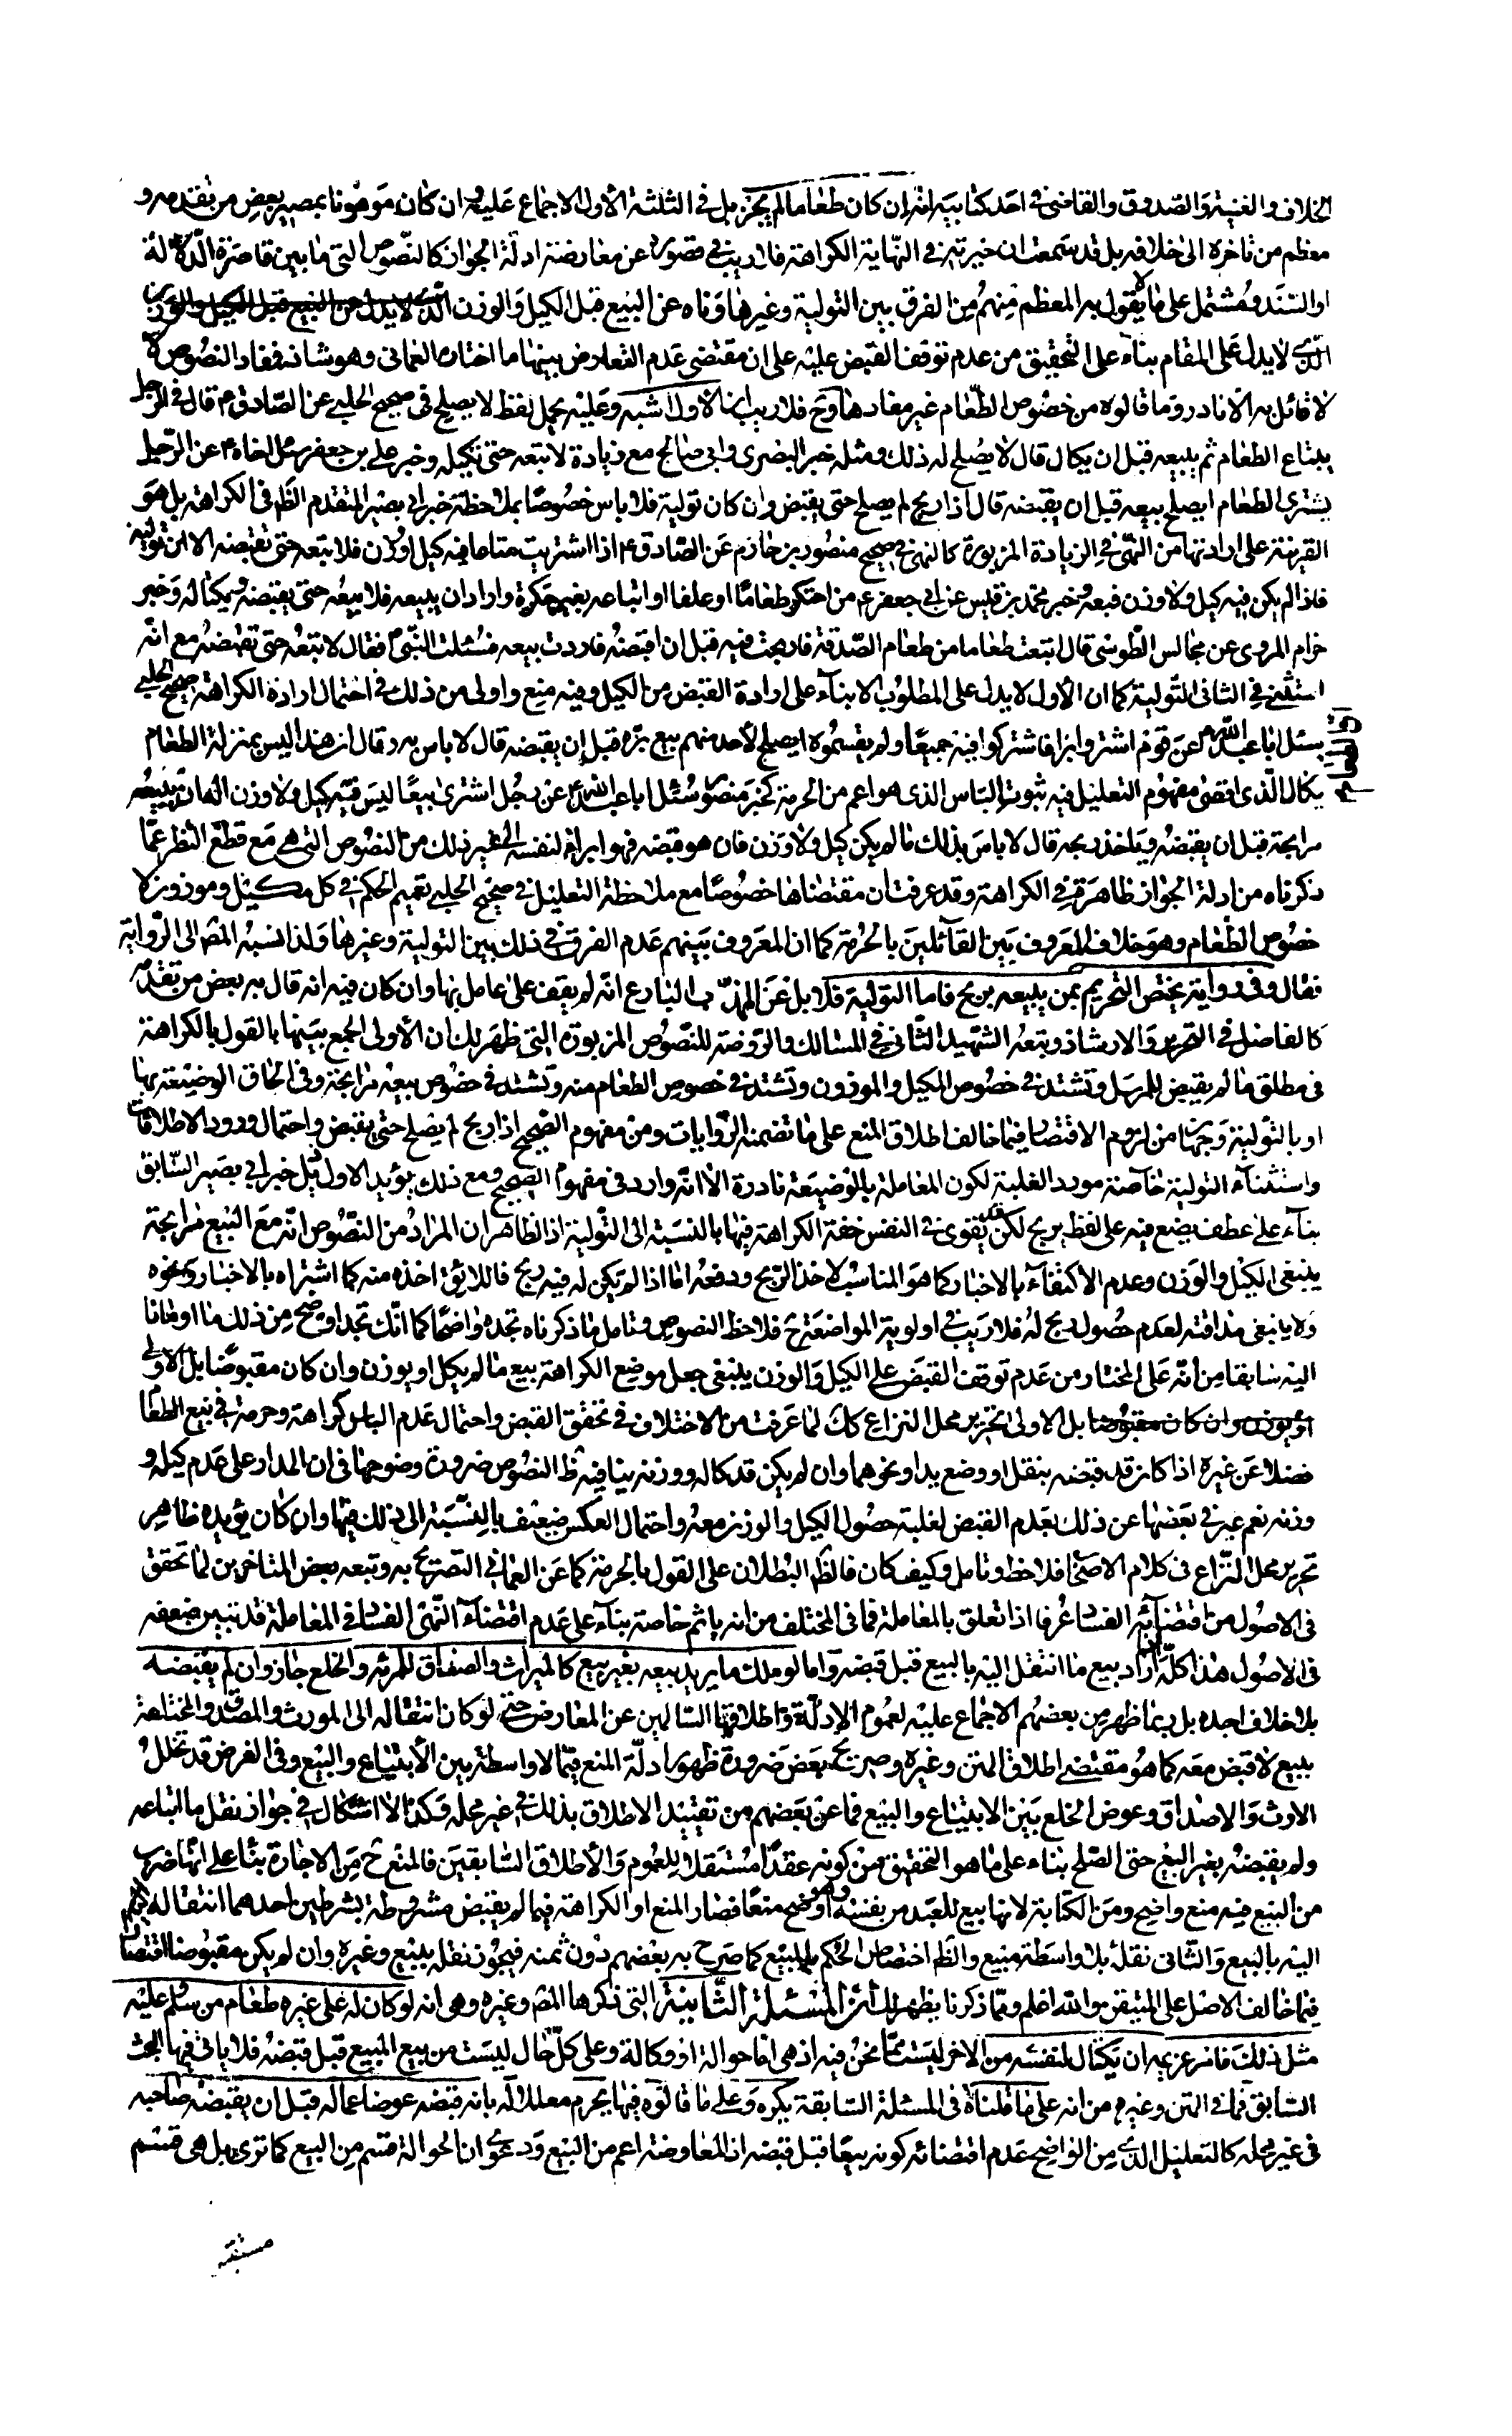 الخلاف والغنية والصدوق والقاضي في احد كتابيه انه إن كان طعاما لم يجز بل في الثلثة الأول الاجماع عليه وان كان موهونا بمصير بعض من تقدمه و
معظم من تاخره الى خلافه بل قد سمعت ان خيرته في النهاية الكراهة فلا ريب في قصوره عن معارضة ادلة الجواز كالنصوص التي ما بين قاصرة الدلالة
او السند ومشتمل على ما لا يقول به المعظم منهم من الفرق بين التولية وغيرها وناه عن البيع قبل الكيل والوزن
الذي لا يدل على المقام بناء على التحقيق من عدم توقف القبض عليه على ان مقتضى عدم التعارض بينهما ما اختاره العماني وهو شاذ فمفاد النصوص ح
لا قائل به الا نادر وما قالوه من خصوص الطعام غير مفادها وح فلا ريب ان الاول اشبه وعليه يحمل لفظ لا يصلح في صحيح الحلبي عن الصادق ع قال في الرجل
يبتاع الطعام ثم يبيعه قبل ان يكال قال لا يصلح له ذلك ومثله خبر البصري وابي صالح مع زيادة لا تبعه حتى تكيله وخبر علي بن جعفر سئل اخاه ع عن الرجل
يشتري الطعام ايصلح بيعه قبل ان يقبضه قال اذا ربح لم يصلح حتى يقبض وان كان تولية فلا باس خصوصا بملاحظة خبر ابي بصير المتقدم الظ في الكراهة بل هو
القرينة على ارادتها من النهي في الزيادة المزبورة كالنهي في صحيح منصور بن حازم عن الصادق ع اذا اشتريت متاعا فيه كيل او وزن فلا تبعه حتى تقبضه الا ان توليه
فاذا لم يكن فيه كيل ولا وزن فبعه وخبر محمد بن قيس عن ابي جعفر ع من احتكر طعاما او علفا او ابتاعه بغير حكرة واراد ان يبيعه فلا يبيعه حتى يقبضه ويكتاله وخبر
حزام المروي عن مجالس الطوسي قال ابتعت طعاما من طعام الصدقة فاربحت فيه قبل ان اقبضه فاردت بيعه فسئلت النبي ص فقال لا تبعه حتى تقبضه مع انه
استثني في الثاني التولية كما ان الأول لا يدل على المطلوب الا بناء على ارادة القبض من الكيل وفيه منع واولى من ذلك في احتمال ارادة الكراهة صحيح الحلبي
سئل ابا عبد الله ع عن قوم اشتروا بزا فاشتركوا فيه جميعا ولم يقسموه ايصلح لأحد منهم بيع بزه قبل ان يقبضه قال لا باس به وقال ان هذا ليس بمنزلة الطعام
يكال الذي اقتضى مفهوم التعليل فيه ثبوت الباس الذي هو اعم من الحرمة كخبر منصور سئل ابا عبد الله ع عن رجل اشترى بيعا ليس فيه كيل ولا وزن اله ان يبيعه
مرابحة قبل ان يقبضه وياخذ ربحه قال لا باس بذلك ما لم يكن كيل ولا وزن فان هو قبضه فهو ابرأ لنفسه الى غير ذلك من النصوص التي هي مع قطع النظر عما
ذكرناه من ادلة الجواز ظاهرة في الكراهة وقد عرفت ان مقتضاها خصوصا مع ملاحظة التعليل في صحيح الحلبي تعميم الحكم في كل مكيل وموزون لا
خصوص الطعام وهو خلاف المعروف بين القائلين بالحرمة كما ان المعروف بينهم عدم الفرق في ذلك بين التولية وغيرها ولذا نسبه المص الى الرواية
فقال وفي رواية يختص التحريم بمن يبيعه بربح فاما التولية فلا بل عن المهذب البارع انه لم يقف على عامل بها وان كان فيه انه قال به بعض من تقدمه
كالفاضل في التحرير والارشاد وتبعه الشهيد الثاني في المسالك والروضة للنصوص المزبورة التي ظهر لك ان الأولى الجمع بينها بالقول بالكراهة
في مطلق ما لم يقبض للمرسل وتشتد في خصوص المكيل والموزون وتشتد في خصوص الطعام منه وتشتد في خصوص بيعه مرابحة وفي الحاق الوضيعة بها
او بالتولية وجهان من لزوم الاقتصار فيما خالف اطلاق المنع على ما تضمنه الروايات ومن مفهوم الصحيح اذا ربح لم يصلح حتى يقبض واحتمال ورود الاطلاقات
واستثناء التولية خاصة مورد الغلبة لكون المعاملة بالوضيعة نادرة الا انه وارد في مفهوم الصحيح ومع ذلك يؤيد الاول ذيل خبر ابي بصير السابق
بناء على عطف يضع فيه على لفظ يربح لكن قد يقوى في النفس خفة الكراهة فيها بالنسبة الى التولية اذ الظاهر ان المراد من النصوص انه مع البيع مرابحة
ينبغي الكيل والوزن وعدم الاكتفاء بالاخبار كما هو المناسب لاخذ الربح ودفعه اما اذا لم يكن له فيه ربح فاللائق اخذه منه كما اشتراه بالاخبار ونحوه
ولا ينبغي مداقته لعدم حصول ربح له فلا ريب في اولوية المواضعة ح فلاحظ النصوص وتامل ما ذكرناه تجده واضحا كما انك تجد اوضح من ذلك ما اومانا
اليه سابقا من انه على المختار من عدم توقف القبض على الكيل والوزن ينبغي جعل موضع الكراهة بيع ما لم يكل او يوزن وان كان مقبوضا بل الاولى
او يوزن وان كان مقبوضا بل الاولى تحرير محل النزاع كك لما عرفت من الاختلاف في تحقق القبض واحتمال عدم الباس كراهة وحرمة في بيع الطعام
فضلا عن غيره اذا كان قد قبضه بنقل او وضع يد او نحوهما وان لم يكن قد كاله ووزنه ينافيه ظ النصوص ضرورة وضوحها في ان المدار على عدم كيله و
وزنه نعم عبر في بعضها عن ذلك بعدم القبض لغلبة حصول الكيل والوزن معه واحتمال العكس ضعيف بالنسبة الى ذلك فيها وان كان يؤيده ظاهر
تحرير محل النزاع في كلام الاصحاب فلاحظ وتامل وكيف كان فالظ البطلان على القول بالحرمة كما عن العماني التصريح به وتبعه بعض المتاخرين لما تحقق
في الاصول من اقتضائه الفساد عرفا اذا تعلق بالمعاملة فما في المختلف من انه ياثم خاصة بناء على عدم اقتضاء النهي الفساد في المعاملة قد تبين ضعفه
في الاصول هذا كله ان اراد بيع ما انتقل اليه بالبيع قبل قبضه واما لو ملك ما يريد بيعه بغير بيع كالميراث والصداق للمرئة والخلع جاز وان لم يقبضه
بلا خلاف اجده بل ربما ظهر من بعضهم الاجماع عليه لعموم الادلة واطلاقها السالمين عن المعارض حتى لو كان انتقاله الى المورث والمصدق والمختلعة
ببيع لا قبض معه كما هو مقتضى اطلاق المتن وغيره وصريح بعض ضرورة ظهور ادلة المنع فيما لا واسطة بين الابتياع والبيع وفي الفرض قد تخلل
الارث والاصداق وعوض الخلع بين الابتياع والبيع فما عن بعضهم من تقييد الاطلاق بذلك في غير محله وكذا لا اشكال في جواز نقل ما ابتاعه
ولم يقبضه بغير البيع حتى الصلح بناء على ما هو التحقيق من كونه عقدا مستقلا للعموم والاطلاق السابقين فالمنع ح من الاجارة بناء على انها ضرب
من البيع فيه منع واضح ومن الكتابة لانها بيع للعبد من نفسه وهو اوضح منعا فصار المنع او الكراهة فيما لم يقبض مشروطة بشرطين احدهما انتقاله
اليه بالبيع والثاني نقله بلا واسطة ببيع والظ اختصاص الحكم بالمبيع كما صرح به بعضهم دون ثمنه فيجوز نقله ببيع وغيره وان لم يكن مقبوضا اقتصارا
فيما خالف الاصل على المتيقن والله اعلم ومما ذكرنا يظهر لك ان المسئلة الثانية التي ذكرها المص وغيره وهو انه لو كان له على غيره طعام من سلم وعليه
مثل ذلك فامر غريمه ان يكتال لنفسه من الاخر ليست مما نحن فيه اذ هي اما حوالة او وكالة وعلى كل حال ليست من بيع المبيع قبل قبضه فلا ياتي فيها البحث
السابق فما في المتن وغيره من انه على ما قلناه في المسئلة السابقة يكره وعلى ما قالوه فيها يحرم معللا له بانه قبضه عوضا عما له قبل ان يقبضه صاحبه
في غير محله كالتعليل الذي من الواضح عدم اقتضائه كونه بيعا قبل قبضه اذ المعاوضة اعم من البيع ودعوى ان الحوالة قسم من البيع كما ترى بل هي قسم